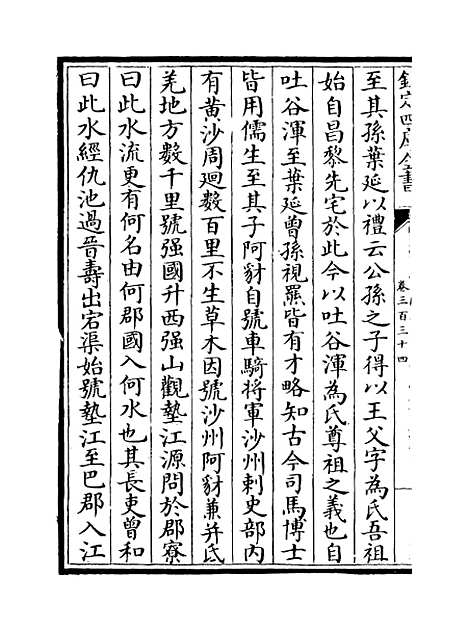 欽定四庫全書
卷三百三十四
至其孫葉延以禮云公孫之子得以王父字為氏吾祖
始自昌黎先宅於此今以吐谷渾為氏尊祖之義也自
吐谷渾至葉延曾孫視羆皆有才略知古今司馬博士
皆用儒生至其子阿豺自號車騎將軍沙州刺史部內
有黃沙周廻數百里不生草木因號沙州阿豺兼并氐
羌地方數千里號强國升西强山觀墊江源問於郡寮
曰此水流更有何名由何郡國入何水也其長吏曾和
曰此水經仇池過晉壽出宕渠始號墊江至巴郡入江